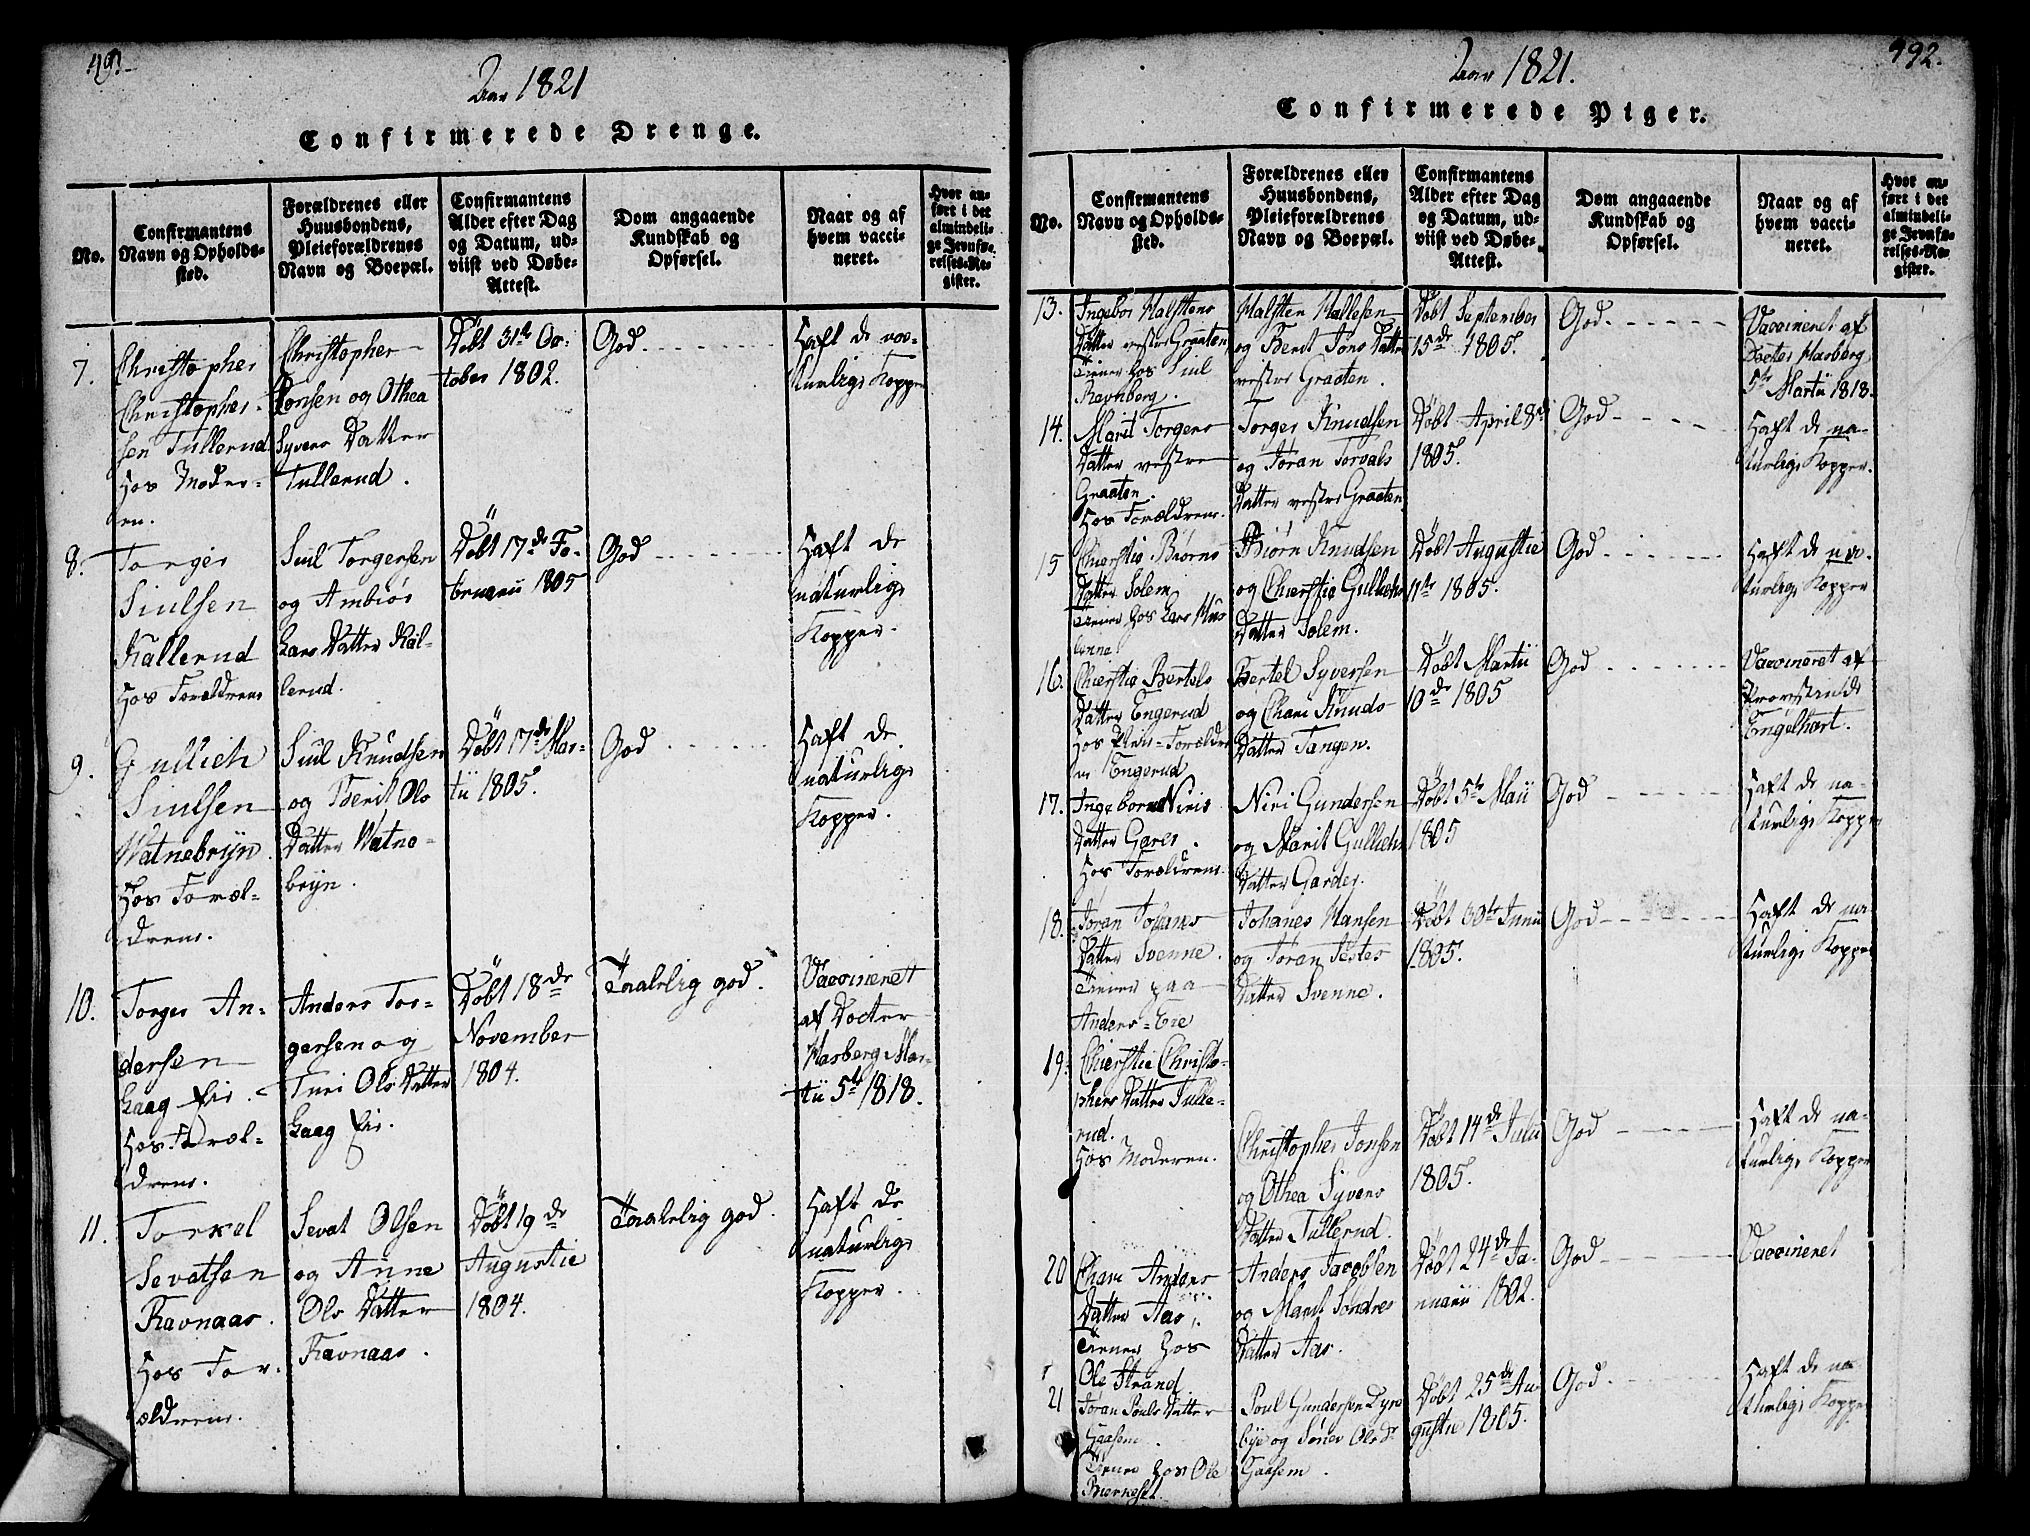 491.
Aar 1821
Confirmerede Drenge.
No.
Confirmantens
Navn og Opholds-
sted.
Forældrenes eller
Huusbondens,
Pleieforældrenes
Navn og Boepæl.
Confirmantens
Alder efter Dag
og Datum, ud-
viist ved Døbe-
Attest.
Dom angaaende
Kundskab og
Opførsel.
Naar og af
hvem vacci-
neret.
Hvor an-
ført i det
almindeli-
ge Jevnfø-
relses-Re-
gister.
7.
Christopher
Christopher-
sen Tullerud
Hos Moder-
en.
Christopher
Jonsen og Othea
Syvers Datter
Tullerud.
Døbt 31te Oc-
tober 1802.
God.
Haft de na-
turlige Kopper
8.
Torger
Siulsen
Kallerud
Hos Forældrene
Siul Torgersen
og Ambiør
Lars Datter Kal-
lerud.
Døbt 17de Fe-
bruarii 1805
God
Haft de
naturlige
Kopper.
9.
Gullich
Siulsen
Watnebryn.
Hos Foræl-
drene.
Siul Knudsen
og Berit Ols
Datter Watne-
bryn.
Døbt 17de Mar-
tii 1805.
God
Haft de
naturlige
Kopper.
10.
Torger An-
dersen
Haag Eie.
Hos Foræl-
drene.
Anders Tor-
gersen og
Turi Ols Datter
Haag Eie.
Døbt 18de
November
1804.
Taalelig god.
Vaccineret
af Docter
Marberg Mar-
tii 5te 1818.
11.
Torkel
Sevatsen
Ravnaas.
Hos For-
ældrene.
Sevat Olsen
og Anne
Ols Datter
Ravnaas.
Døbt 19de
Augustie
1804.
Taalelig god.
Haft de
naturlige
Kopper.
492.
Aar 1821.
Confirmerede Piger.
No.
Confirmantens
Navn og Opholds-
sted.
Forældrenes eller
Huusbondens,
Pleieforældrenes
Navn og Boepæl.
Confirmantens
Alder efter Dag
og Datum, ud-
viist ved Døbe-
Attest.
Dom angaaende
Kundskab og
Opførsel.
Naar og af
hvem vacci-
neret.
Hvor an-
ført i det
almindeli-
ge Jevnfø-
relses-Re-
gister.
13.
Ingebor Halstens
Datter vestre Graaten
Tiener hos Siul
Ravnberg.
Halsten Hallesen
og Berit Jons Datter
vestre Graaten.
Døbt September
15de 1805.
God
Vaccineret af
Docter Marberg
5te Martii 1818.
14.
Marit Torgers
Datter vestre
Graaten.
Hos Forældrene.
Torger Knudsen
og Jøran Torvals
Datter vestre Graaten
Døbt April 8de
1805.
God
Haft de na-
turlige Kopper.
15
Chierstie Biørns
Datter Solem
Tiener hos Lars Mus
Biørn Knudsen
og Chierstie Gullichs
Datter Solem.
Døbt Augustie
11te 1805.
God
Haft de na-
turlige Kopper
16.
Chierstie Bertels
Datter Engerud
Hos Pleie-Forældre
ne Engerud
Bertel Syversen
og Chari Knuds
Datter Tangen.
Døbt Martii
10de 1805
God
Vaccineret af
Provstinde
Engelhart.
17.
Ingeborg Niris
Datter Garer.
Hos Forældrene
Niri Gundersen
og Marit Gullichs
Datter Garder.
Døbt 5te Maii
1805
God
Haft de na-
turlige Kopper
18.
Jøran Johanes
Datter Svenne.
Tiener paa
Anders-Eie
Johanes Hansen
og Jøran Peders
Datter Svenne.
Døbt 30te Junii
1805.
God
Haft de na-
turlige Kopper
19.
Chierstie Christo-
phers Datter Tulle-
rud.
Hos Moderen.
Christopher Jonsen
og Othea Syvers
Datter Tullerud.
Døbt 14de Julii
1805.
God
Haft de na-
turlige Kopper
20
Chari Anders
Datter Aas,
Tiener hos
Ole Strand
Anders Jacobsen
og Marit Sondres
Datter Aas.
Døbt 24de Ja-
nuarii 1802.
God
Vaccineret
21
Jøran Pouls Datter
Haasem.
Tiener hos Ole
Bierkeset.
Poul Gundersen Dyre
bye og Søner Ols Dr
Haasem.
Døbt 25de Au-
gustie 1805.
God.
Haft de na
turlige Kopper